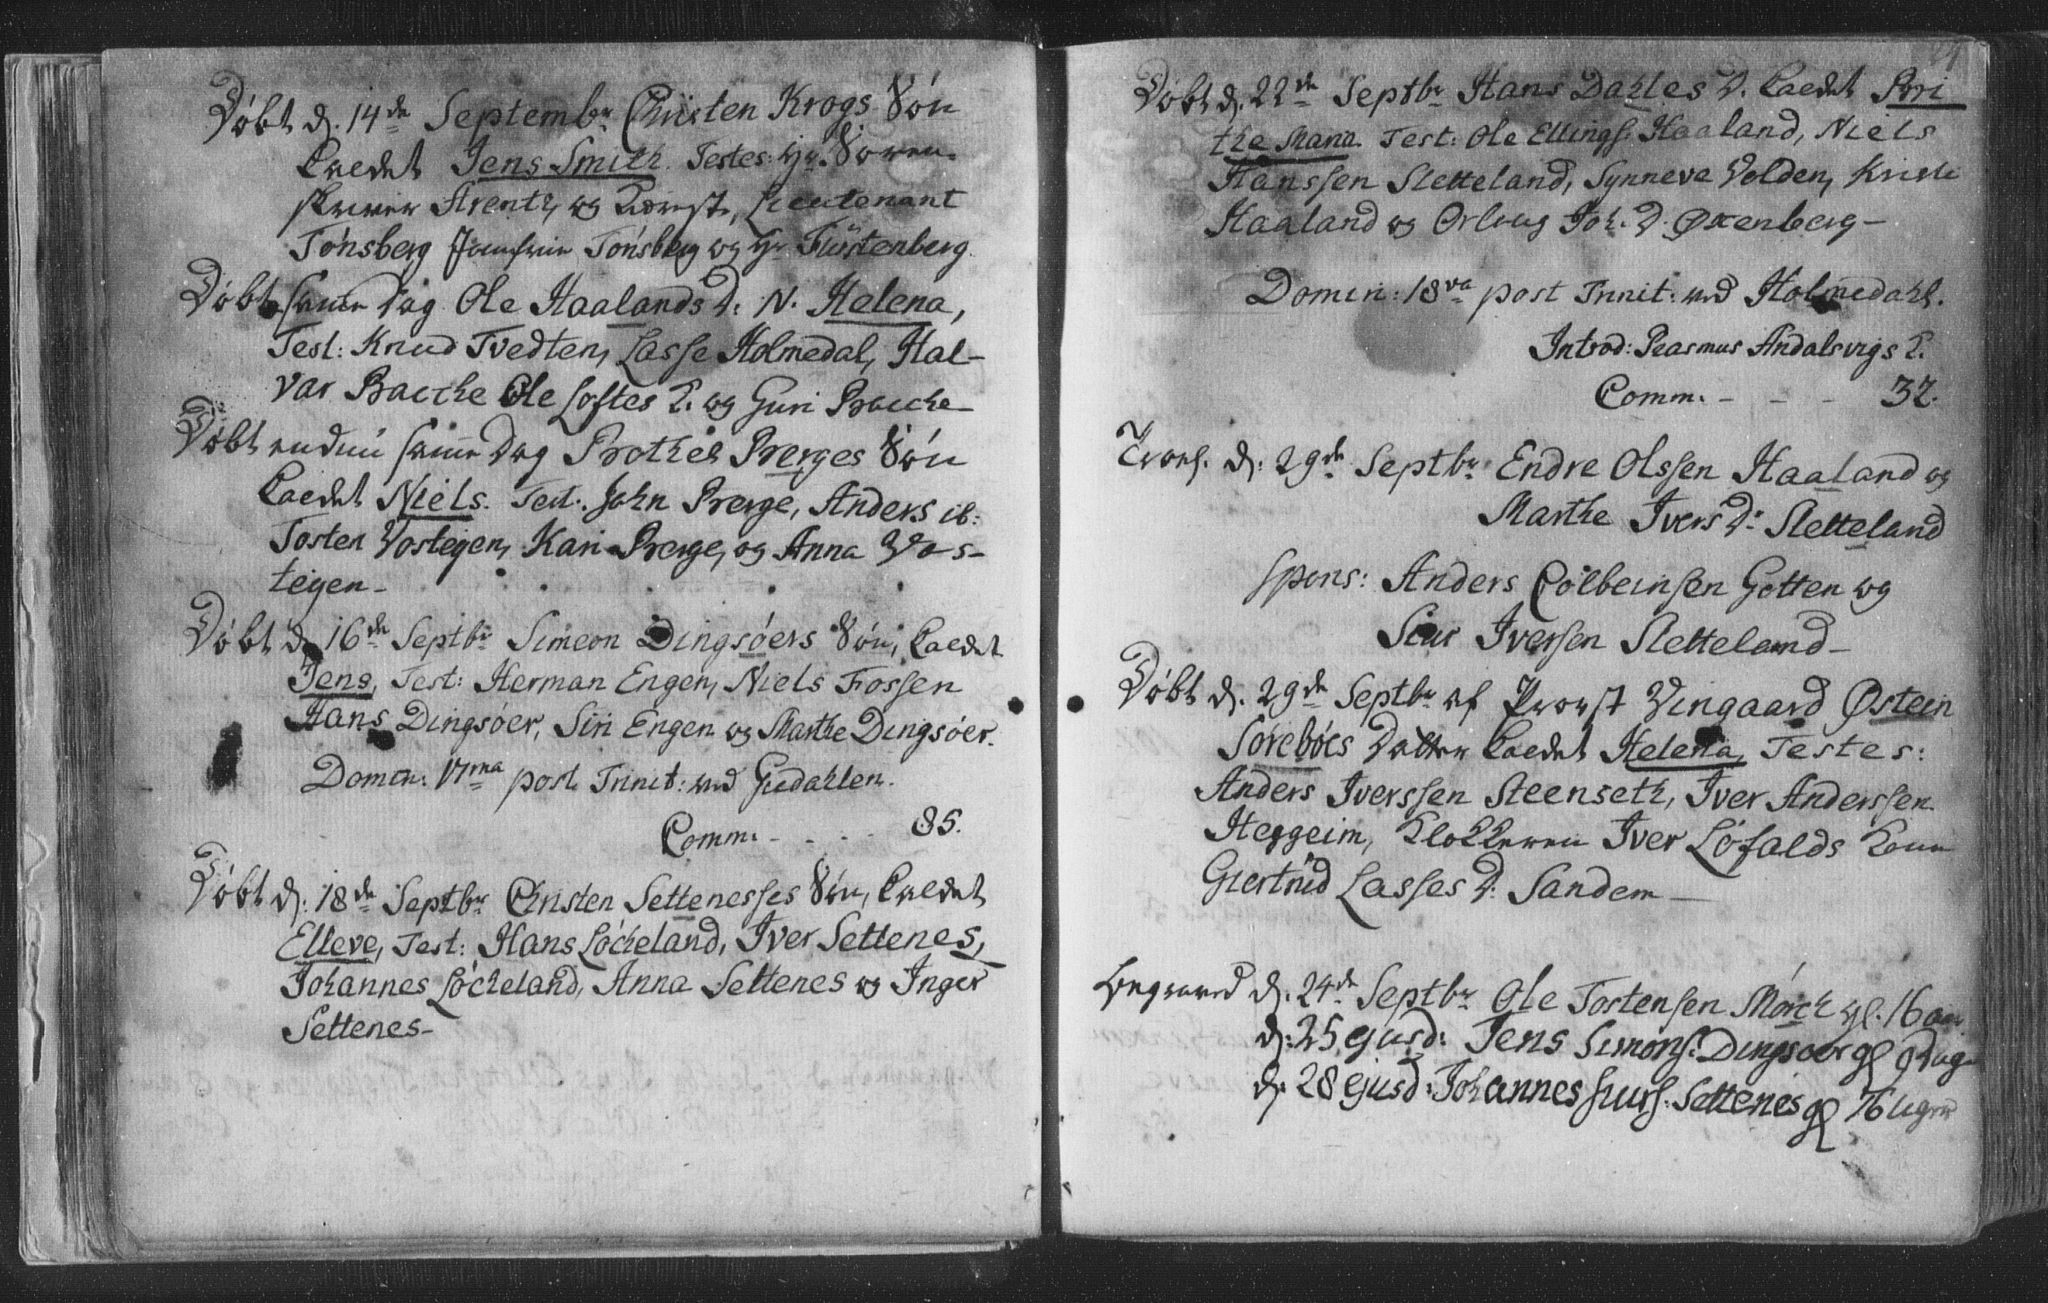 Døbt d. 14de Septembr Christen Krogs Søn
kaldet Jens Smith. Testes: Hr. Soren-
skriver Arentz og Kiærest, Lieutenant
Tønsberg Jomfrue Tønsberg og Hr Fürstenberg.
Døbt samme Dag Ole Haalands D: N. Helena,
Test: Knud Tvedten, Lasse Holmedal, Hal-
var Bacche Ole Loftes K. og Guri Bacche-
Døbt endnu samme Dag Bothel Berges Søn
kaldet Niels. Test: John Berge, Anders ib:
Tosten Vosteigen, Kari Berge, og Anna Vos-
teigen-
Døbt d. 16de Septbr Simeon Dingsøers Søn, kaldet
Jens, Test: Herman Engen, Niels Fossen
Hans Dingsøer, Siri Engen og Marthe Dingsøer.
Domin: 17ma post Trinit: ved Giedahlen.
Comm: - - - 85.
Døbt d: 18de Septbr Christen Settenesses Søn, kaldet
Elleve, Test: Hans Løcheland, Iver Settenes,
Johannes Løcheland, Anna Settenes og Inger
Settenes-
Døbt d. 22de Septbr Hans Dahles D. kaldet Bri
the Maria. Test: Ole Ellings: Haaland, Niels
Hanssen Sletteland, Synneve Volden, Kristi
Haaland og Orloug Joh. D. Oxenberg-
Domin: 18va post Trinit: ved Holmedahl.
Introd: Rasmus Andalsvigs K.
Comm. - - - 32.
Trol. d: 29de Septbr Endre Olssen Haaland og
Marthe Ivers D: Sletteland
Spons: Anders Colbeinsen Gotten og
Siur Iversen Sletteland-
Døbt d. 29de Septbr af Provst Vingaard Østein
Sørebøes Datter kaldet Helena, Testes:
Anders Iverssen Steenseth, Iver Anderssen
Heggeim, Klokkeren Iver Løfalds Kone
Giertrüd Lasses D: Sandem-
Begraved d. 24de Septbr Ole Tostensen Mørch gl. 16 aar.
d: 25 ejusd: Jens Simons: Dingsøer gl 9 Dage
d. 28 ejusd: Johannes Siurs: Settenes gl 76 Uger